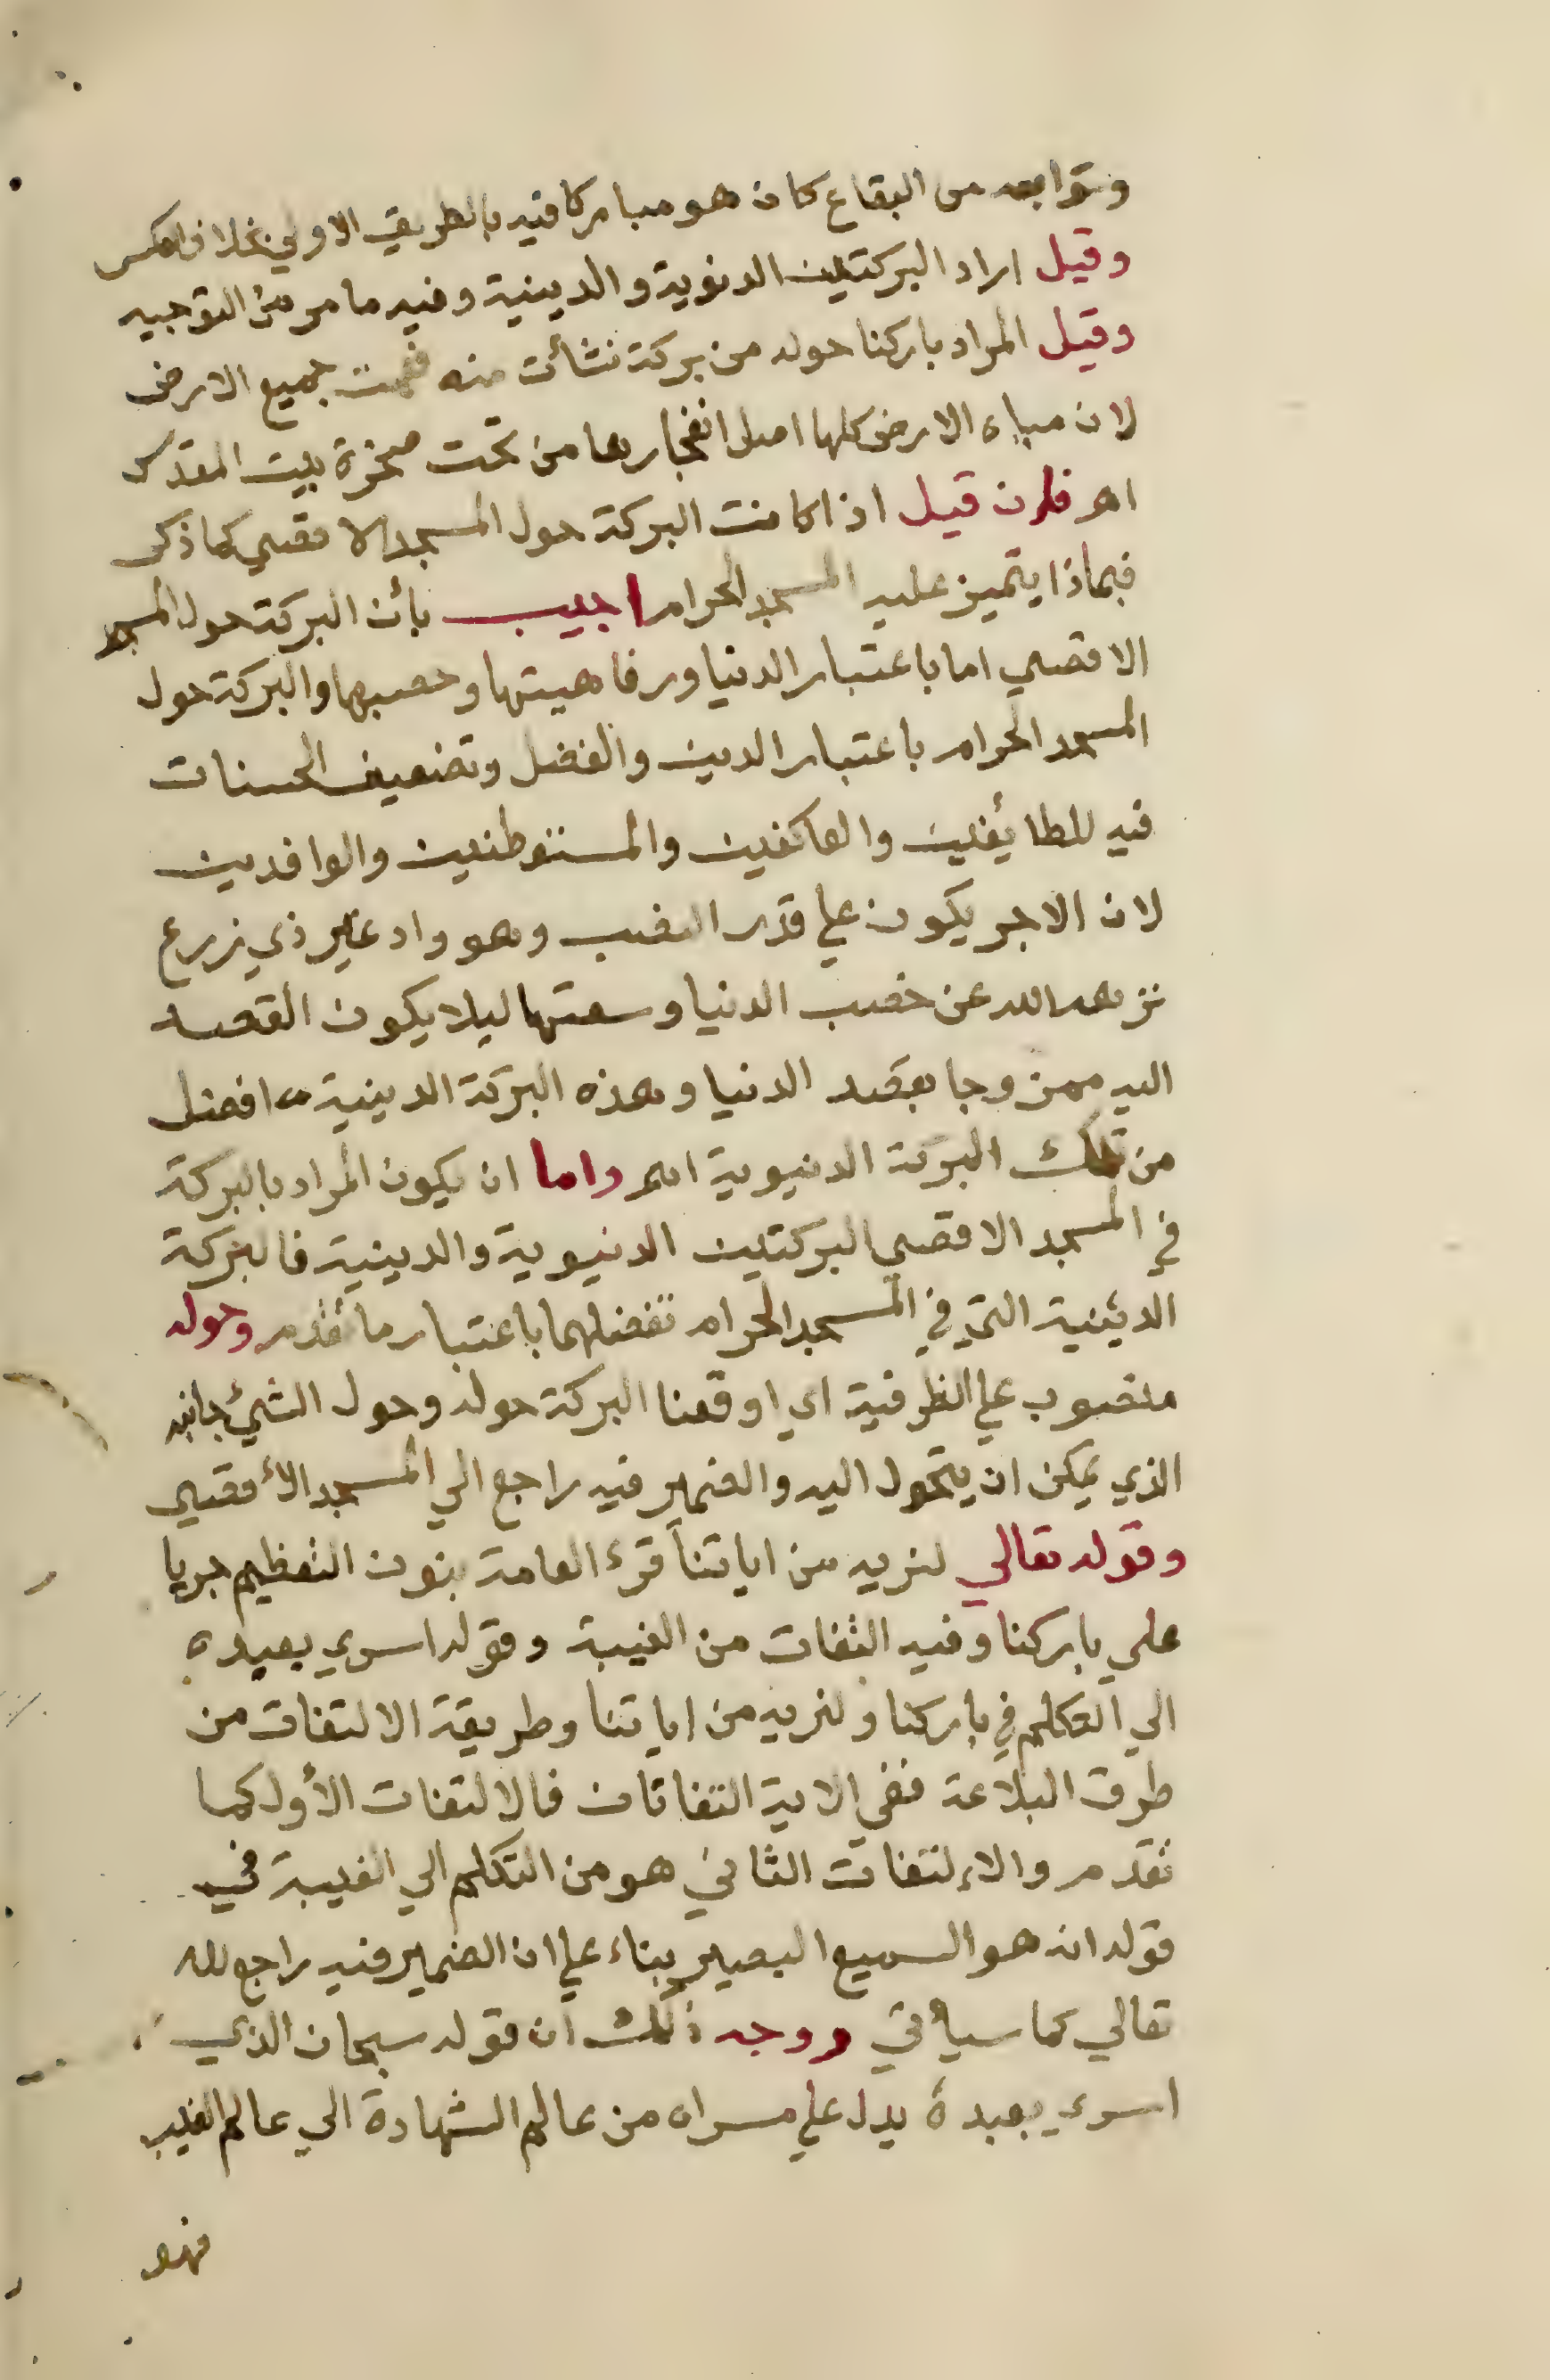 وتوابعه من البقاع كان هو مباركا فيه بالطريق الاولي بخلاف العكس
وقيل اراد البركتين الدنوية والدينية وفيه ما مر من التوجيه
وقيل المراد باركنا حوله من بركة نشأت منه فعمت جميع الارض
لان مياه الارض كلها اصل انفجارها من تحت صخرة بيت المقدس
اهـ فان قيل اذا كانت البركة حول المسجد الاقصي كما ذكر
فبماذا يتميز عليه المسجد الحرام اجيب بأن البركة حول المسجد
الاقصي اما باعتبار الدنيا ورفاهيتها وخصبها والبركة حول
المسجد الحرام باعتبار الدين والفضل وتضعيف الحسنات
فيه للطائفين والعاكفين والمستوطنين والوافدين
لان الاجر يكون علي قدر النصب وهو واد غير ذي زرع
نزهه الله عن خصب الدنيا وسعتها ليلا يكون القصد
اليه ممزوجا بقصد الدنيا وهذه البركة الدينية افضل
من تلك البركة الدنيوية اهـ واما ان يكون المراد بالبركة
في المسجد الاقصي البركتين الدنيوية والدينية فالبركة
الدينية التي في المسجد الحرام تفضلهما باعتبار ما تقدم وحوله
منصوب علي الظرفية اي اوقعنا البركة حوله وحول الشئ جانبه
الذي يمكن ان يتحول اليه والضمير فيه راجع الي المسجد الأقصي
وقوله تعالي لنريه من اياتنا قرء العامة بنون التعظيم جريا
علي باركنا وفيه التفات من الغيبة وقوله اسري بعبده
الي التكلم في باركنا ولنريه من اياتنا وطريقة الالتفات من
طرق البلاغة ففي الاية التفاتان فالالتفات الأول كما
تقدم والإلتفات الثاني هو من التكلم الي الغيبة في
قوله انه هو السميع البصير بناء علي ان الضمير فيه راجع لله
تعالي كما سيأتي ووجه ذلك ان قوله سبحان الذي
اسري بعبده يدل علي مسراه من عالم الشهادة الي عالم الغيب
فهو